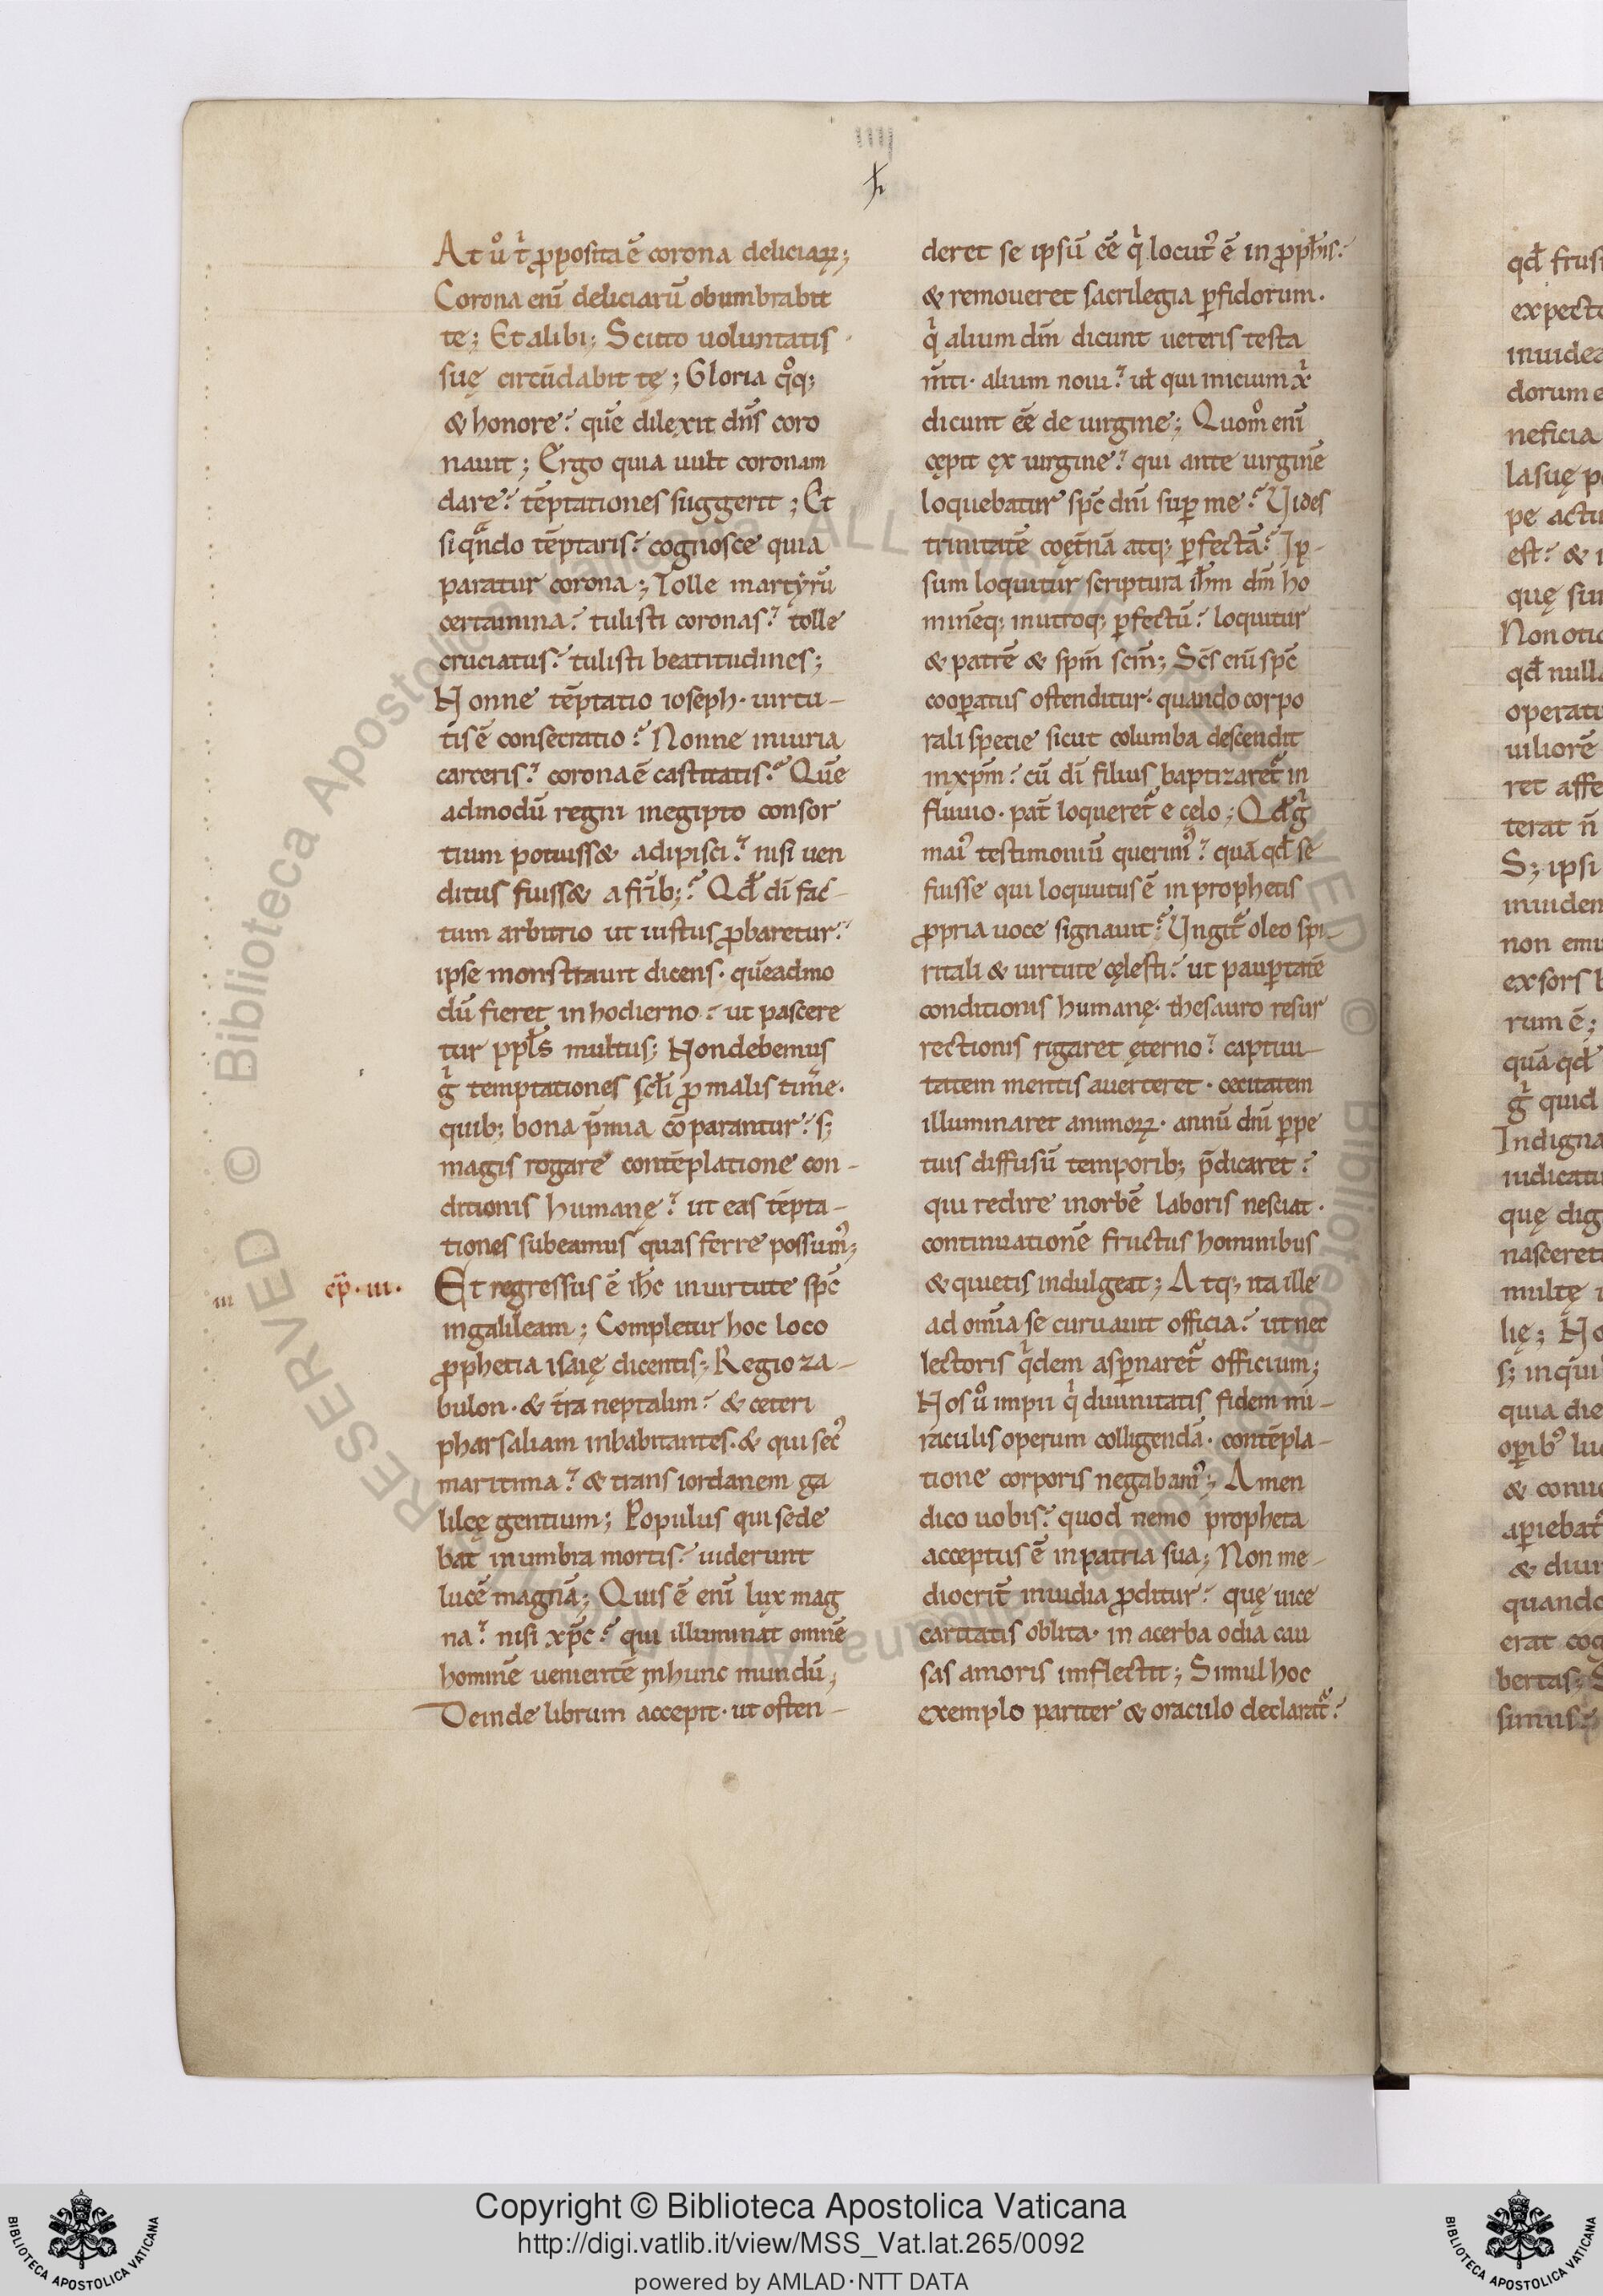 IIII
At ů t̾ p̱posita ē corona deliciaꝝ;
Corona enī deliciarū obumbrabit
te; Et alibi; Scuto uoluntatis
suę circūdabit tę; Gloria qͦq;
& honore? quē dilexit dn̄s coro
nauit; Ergo quia uult coronam
dare? tēptationes suggerit; Et
si qn̄do tēptaris? cognosce quia
paratur corona; Tolle martyrū
certamina? tulisti coronas? tolle
cruciatus? tulisti beatitudines;
Nonne tēptatio ioseph· uirtu-
tis ē consecratio? Nonne iniuria
carceris? corona ē castitatis? Quē
admodū regni in egipto consor
tium potuiss& adipisci? nisi uen
ditus fuiss& a frīb;? Qđ dī fac-
tum arbitrio ut iustus ꝓbaretur?
ipse monstrauit dicens· quēadmo
dū fieret in hodierno? ut pascere
tur ppl̄s multus; Non debemus
g̾ temptationes scl̄i ꝓ malis tim̄e·
quib; bona p̄mia cōparantur? s;
magis rogare contēplatione con-
ditionis humanę? ut eas tēpta-
tiones subeamus quas ferre possum᾽;
III
cp̄· III·
Et regressus ē ih̄c in uirtute sp̄c
in galileam; Completur hoc loco
ꝓphetia isaię dicentis; Regio za-
bulon· & t̄ra neptalim? & ceteri
pharsaliam inhabitantes· & qui sec᾽
maritima? & trans iordanem ga
lilęę gentium; Populus qui sede
bat in umbra mortis? uiderunt
lucē magnā; Quis ē enī lux mag
na? nisi xp̄c? qui illuminat omnē
hominē uenientē in hunc mundū;
Deinde librum accepit· ut osten-
deret se ipsū eē q̾ locut᾽ ē in ꝓph̄is?
& remoueret sacrilegia ꝑfidorum·
q̾ alium dm̄ dicunt ueteris testa
m̄ti· alium noui? uł qui inicium x̄
dicunt eē de uirgine; Quomͦ enī
cępit ęx uirgine? qui ante uirginē
loquebatur sp̄c dn̄i suꝑ me? Uides
trinitatē coęt̄nā atq; ꝑfectā? Ip-
sum loquitur scriptura ih̄m dm̄ ho
minēq; in utroq; ꝑfectū? loquitur
& patrē & sp̄m scm̄; Scs̄ enī sp̄c
cooꝑatus ostenditur· quando corpo
rali specie sicut columba descendit
in xp̄m? cū dī filius baptizaret᷑ in
fluuio· pat̄ loqueret᷑ e cęlo; Qđ g̾
mai᾽ testimoniū querim᾽? quā qđ se
fuisse qui loquutus ē in prophetis
ꝓpria uoce signauit? Ungit᷑ oleo spi-
ritali & uirtute cęlesti? ut pauꝑtatē
conditionis humanę· thesauro resur
rectionis rigaret ęterno? captiui-
tatem mentis auerteret· cecitatem
illuminaret animoꝝ· annū dn̄i ꝑpe
tuis diffusū temporib; p̄dicaret?
qui redire in orbē laboris nesciat·
continuationē fructus hominibus
& quietis indulgeat; Atq; ita ille
ad omīa se curuauit officia? ut nec
lectoris q̾dem asꝑnaret᷑ officium;
Nos ů impii q̾ diuinitatis fidem mi-
raculis operum colligendā· contēpla-
tione corporis negabam᾽; Amen
dico uobis? quod nemo propheta
acceptus ē in patria sua; Non me-
diocrit̄ inuidia ꝓditur? quę uice
caritatis oblita· in acerba odia cau
sas amoris inflectit; Simul hoc
exemplo pariter & oraculo declarat᷑?
qđ frus
expect
inuidea
dorum e
neficia
la suę p
pe actu
est? & i
quę sun
Non otio
qđ null
operatu
uiliorē
ret affe
terat n̄
S; ipsi
inuiden
non emu
exsors b
rum ē;
quā qđ
g̾ quid
Indigna
iudicatu
quę dig
nascere
multę i
lię; No
s; inquī
quia die
oꝑib᾽ lu
& conue
aꝑiebat᷑
& diui
quando
erat cog
bertas; S
simus;
© Biblioteca Apostolica Vaticana ALL RIGHTS RESERVED © Biblioteca Apostolica Vaticana ALL RIGHTS RESERVED
BIBLIOTECA APOSTOLICA VATICANA
Copyright © Biblioteca Apostolica Vaticana
http://digi.vatlib.it/view/MSS_Vat.lat.265/0092
powered by AMLAD·NTT DATA
BIBLIOTECA APOSTOLICA VATICANA